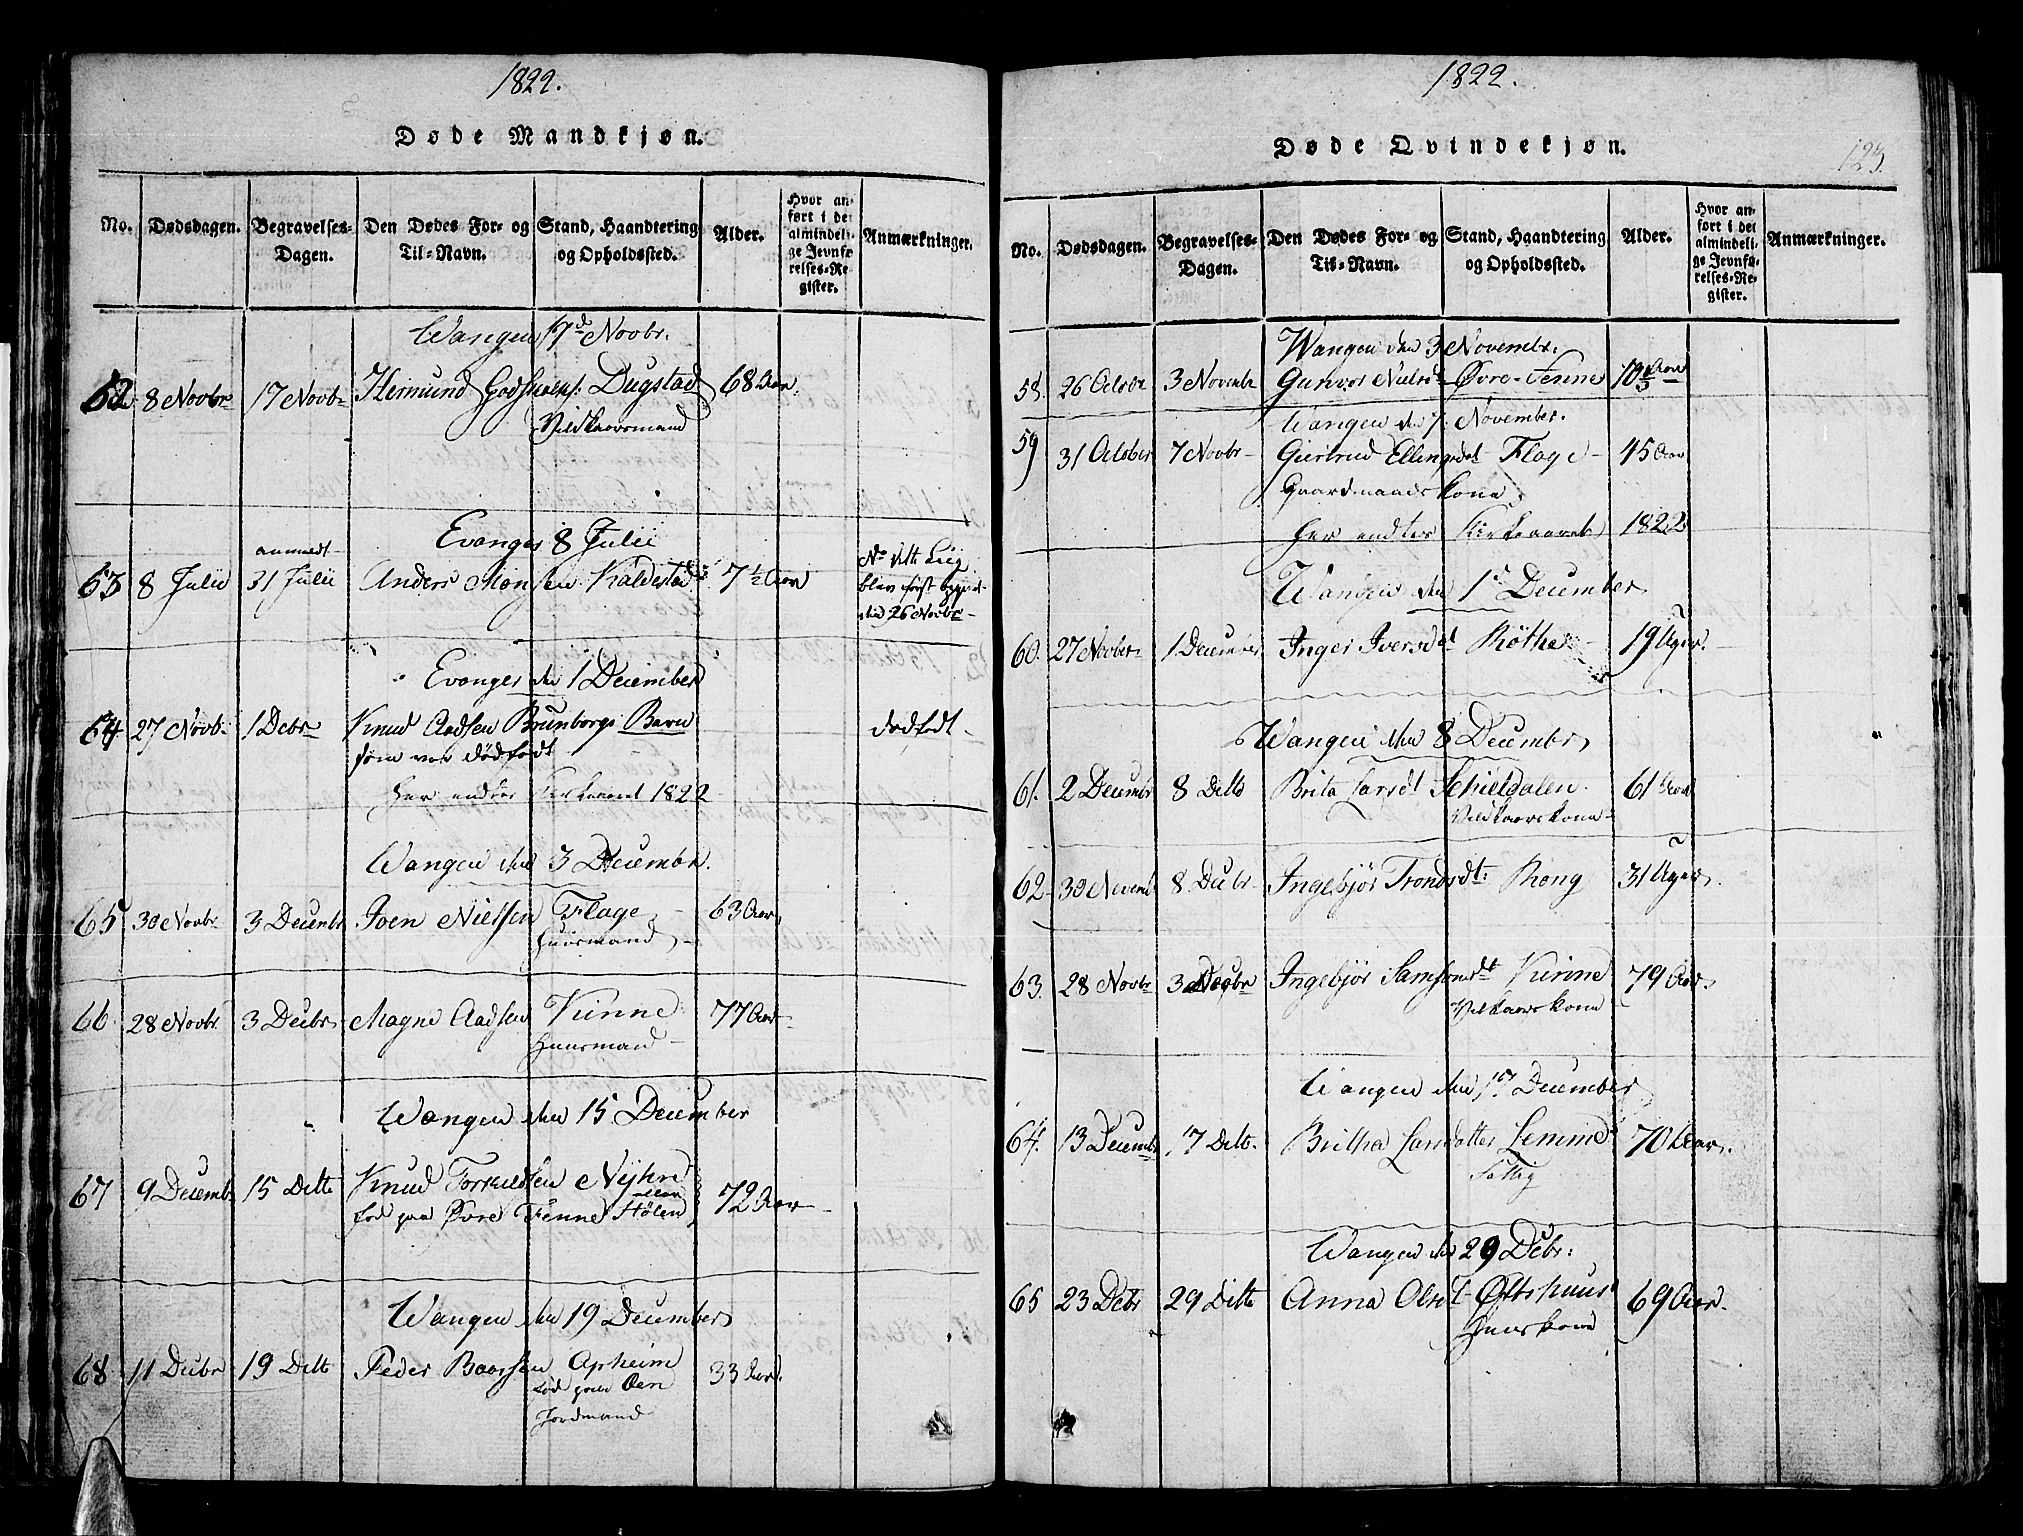 1822.
Døde Mandkjøn.
No. Dødsdagen. Begravelses-Dagen. Den Dødes For- og Til-Navn. Stand, Haandtering og Opholdssted. Alder. Hvor anført i det almindelige Jevnførelses-Register. Anmærkninger.
Wangen 17d Novbr.
62 8 Novbr 17 Novbr Hermund Dugstad 68 Aar.
Vilkaarsmand
Evanger 8 Julii
63 8 Julii anmeldt 31 Julii Anders Monsen Kaldestad 7 1/2 Aar
den 26 Novbr
Evanger den 1 December
64 27 Novb. 1 Debr Knud Aadsen Brunborgs Barn dødfødt
som var dødfødt
Her endtes Kirkeaaret 1822
Wangen den 3 Decembr.
65 30 Novbr 3 Decembr Joen Nielsen Flage 63 Aar
Huusmand
66. 28 Novbr. 3 Decbr Magne Aadsen Vinne 77 Aar
Huusmand
Wangen den 15 December
67 9 Decembr 15 Ditto Knud Torkildsen 72 Aar
fød paa Øvre Fenne Hølen
Wangen den 19 December
68 11 Decbr 19 Ditto Peder Baarsen Opheim 33 Aar.
fød paa Øen
Jordmand
1822.
Døde Qvindekjøn.
123.
No. Dødsdagen. Begravelses-Dagen. Den Dødes For- og Til-Navn. Stand, Haandtering og Opholdssted. Alder. Hvor anført i det almindelige Jevnførelses-Register. Anmærkninger.
Wangen den 3 Novembr.
58. 26 Octobr 3 Novembr Gunvor Nielsdt Øvre-Fenne Aar
Wangen den 7. November.
59 31 October 7 Novbr Giertrud Ellingsdat Flage 45 Aar
Gaardmandskone
Her endtes Kirkeaaret 1822
Wangen den 1 December
60. 27 Novber 1 December Inger Iversdt Røthe 19 Uger.
Wangen den 8 Decembr
61. 2 Decembr 8 Ditto Brita Larsdt Schieldalen. 61 Aar
Vilkaarskone
62 30 Novemb 8 Decbr Ingebjør Trondsdt: Rong 31 Uger.
63. 28 Novbr 3 Decbr Ingebjør Samsonsdt Vinne 79 Aar
Vilkaarskone
Wangen den 17 December
64. 13 Decembr 17 Ditto Britha Larsdatter Lemme 70 Aar.
Fattig
Wangen den 29 Debr:
65 23 Debr 29 Ditto Anna Olsdt 69 Aar.
Huuskone